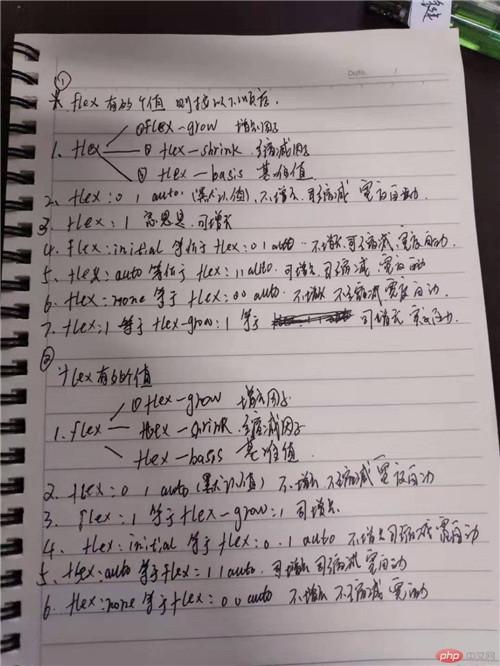 Date. /
①
※ flex 有的个值 则按以下顺序.
①flex-grow 增长因子
1. flex ② flex-shrink 缩减因子
③ flex-basis 基准值
2. flex: 0 1 auto (默认值), 不增长 可缩减 宽度自动.
3. flex: 1 意思是 可增长
4. flex: initial 等价于 flex: 0 1 auto 不增长 可缩减 宽度自动.
5. flex: auto 等价于 flex: 1 1 auto. 可增长 可缩减 宽度自动
6. flex: none 等于 flex: 0 0 auto 不增长 不缩减 宽度自动.
7. flex: 1 等于 flex-grow: 1 等于 可增长 宽度自动.
②
flex有的值
① flex-grow 增长因子
1. flex flex-shrink 缩减因子
flex-basis 基准值.
2. flex: 0 1 auto (默认值) 不增长 不缩减 宽度自动
3. flex: 1 等于 flex-grow: 1 可增长.
4. flex: initial 等于 flex: 0 1 auto 不增长可缩减 宽度自动
5. flex: auto 等于 flex: 1 1 auto. 可增长 可缩减 宽自动
6. flex: none 等于 flex: 0 0 auto 不增长 不缩减 宽自动
php 中文网